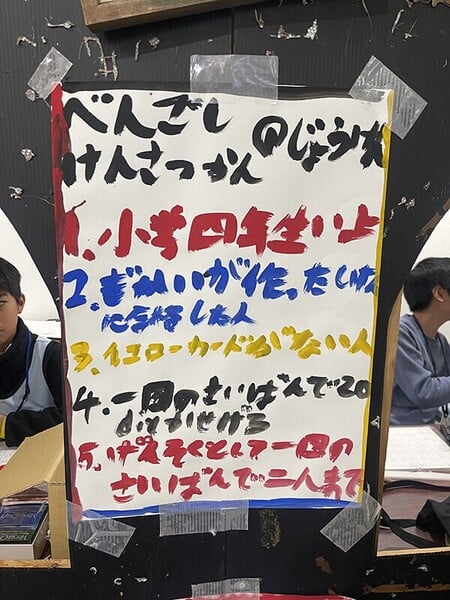 べんごし
けんさつかん のじょうけん
1.小学四年生い上
2.ぎかいが作ったしけん
に合格した人
3.イエローカードがない人
4.一回のさいばんで20
かせげる
5.げんそくとして一回の
さいばんで二人まで